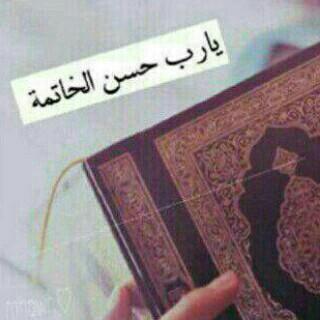 يارب حسن الخاتمة